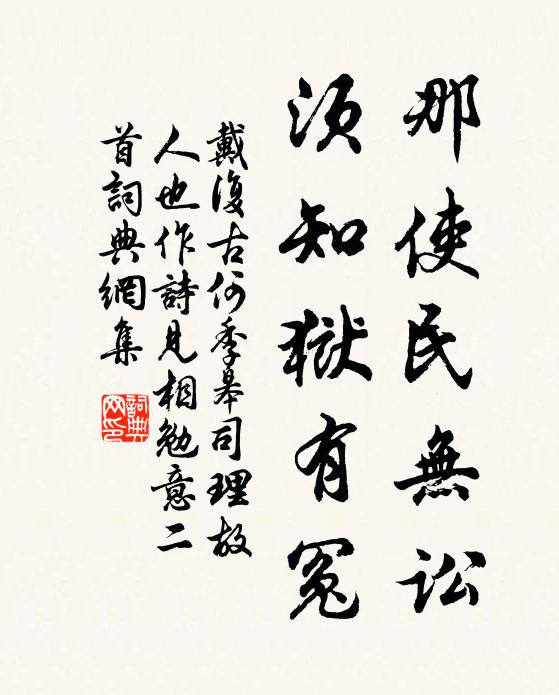 那使民無訟
須知獄有冤
戴復古何季皋司理故
人也作詩見相勉意二
首詞典網集
詞典
网印